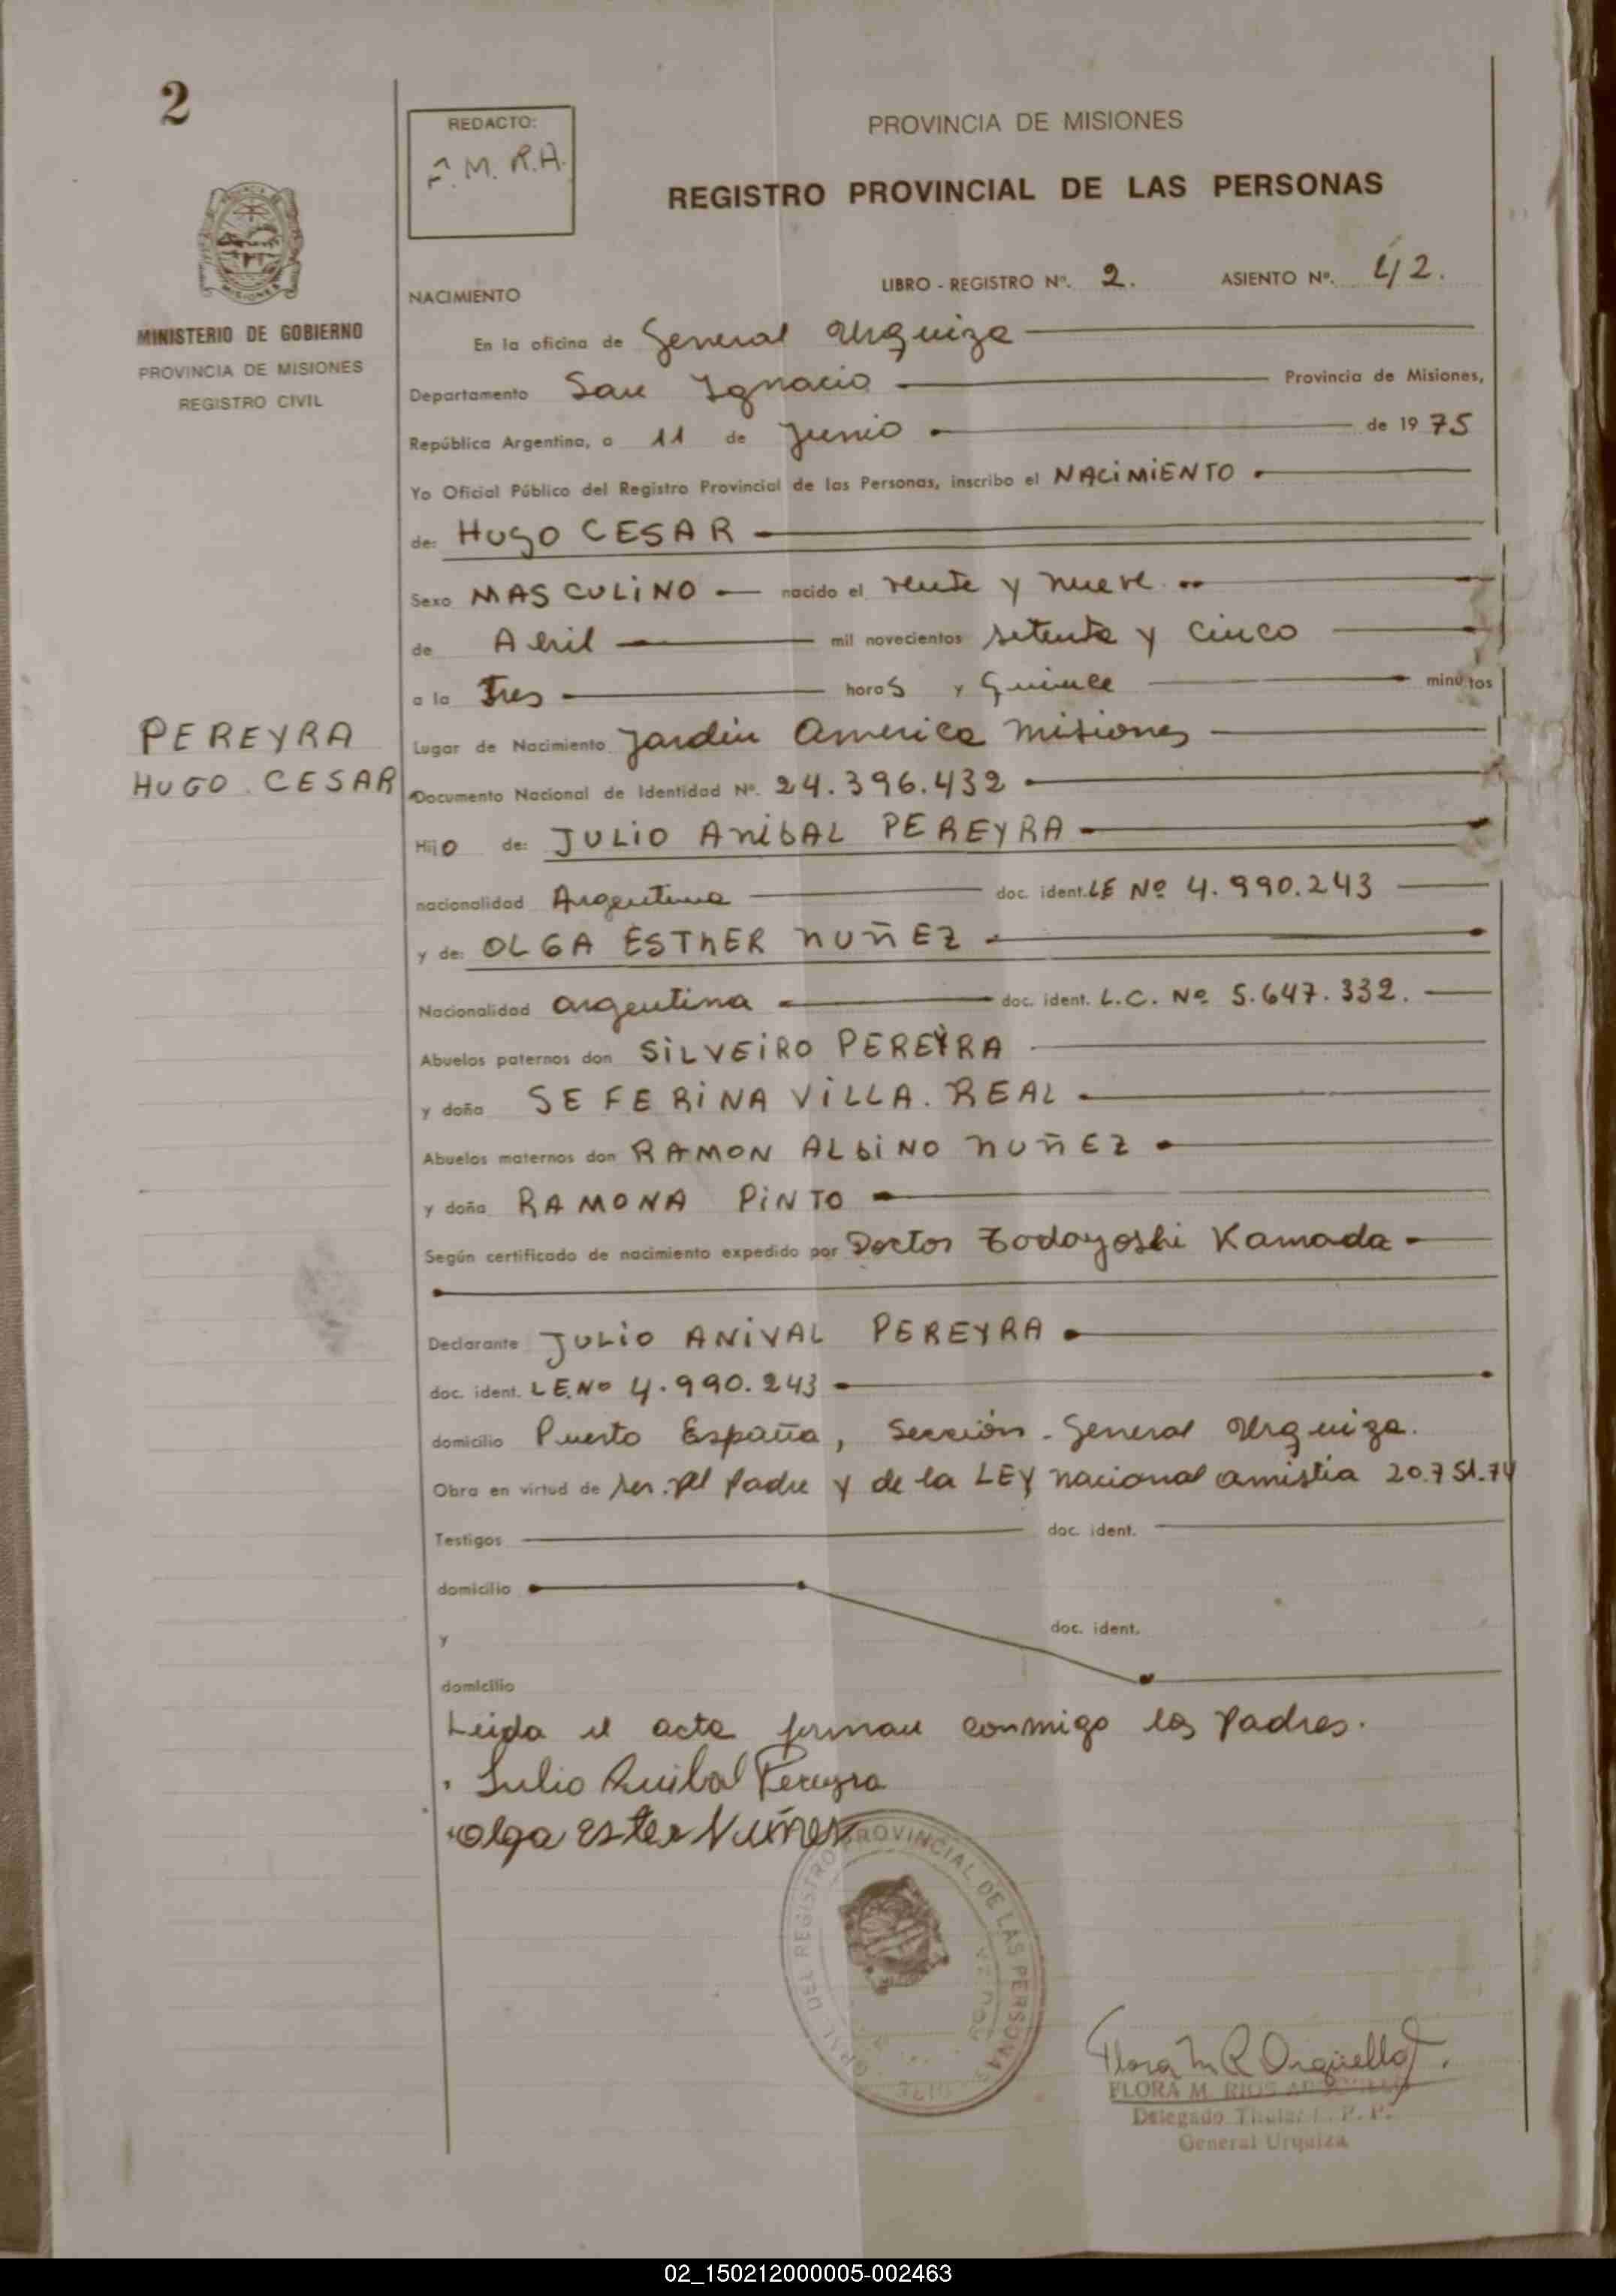 2
REDACTO:
F. M. R.A.
PROVINCIA DE MISIONES
REGISTRO PROVINCIAL DE LAS PERSONAS
MINISTERIO DE GOBIERNO
PROVINCIA DE MISIONES
REGISTRO CIVIL
LIBRO - REGISTRO Nº. 2. ASIENTO Nº. 42.
NACIMIENTO
En la oficina de General Urquiza
Departamento San Ignacio Provincia de Misiones,
República Argentina, a 11 de Junio de 1975
Yo Oficial Público del Registro Provincial de las Personas, inscribo el NACIMIENTO
de: HUGO CESAR
Sexo MASCULINO nacido el veinte y nueve
de Abril mil novecientos setenta y cinco
a la Tres horas y Quince minutos
PEREYRA
HUGO CESAR
Lugar de Nacimiento Jardin America Misiones
Documento Nacional de Identidad Nº. 24.396.432
Hijo de: JULIO ANIBAL PEREYRA
nacionalidad Argentina doc. ident. LE Nº 4.990.243
y de: OLGA ESTHER NUÑEZ
Nacionalidad argentina doc. ident. L.C. Nº 5.647.332.
Abuelos paternos don SILVEIRO PEREYRA
y doña SEFERINA VILLA. REAL
Abuelos maternos don RAMON ALBINO NUÑEZ
y doña RAMONA PINTO
Según certificado de nacimiento expedido por Doctor Todayoshi Kamada
Declarante JULIO ANIVAL PEREYRA
doc. ident. LE.Nº 4.990.243
domicilio Puerto España, Sección - General Urquiza.
Obra en virtud de ser el Padre y de la LEY nacional amistia 20.751.74
Testigos doc. ident.
domicilio
y doc. ident.
domicilio
Leida el acta firman conmigo los Padres.
Julio Anibal Pereyra
Olga Ester Nuñez
DEL REGISTRO PROVINCIAL DE LAS PERSONAS
Flora M R Orgüello
FLORA M. RIOS
Delegado Titular R. P. P.
General Urquiza
02_150212000005-002463